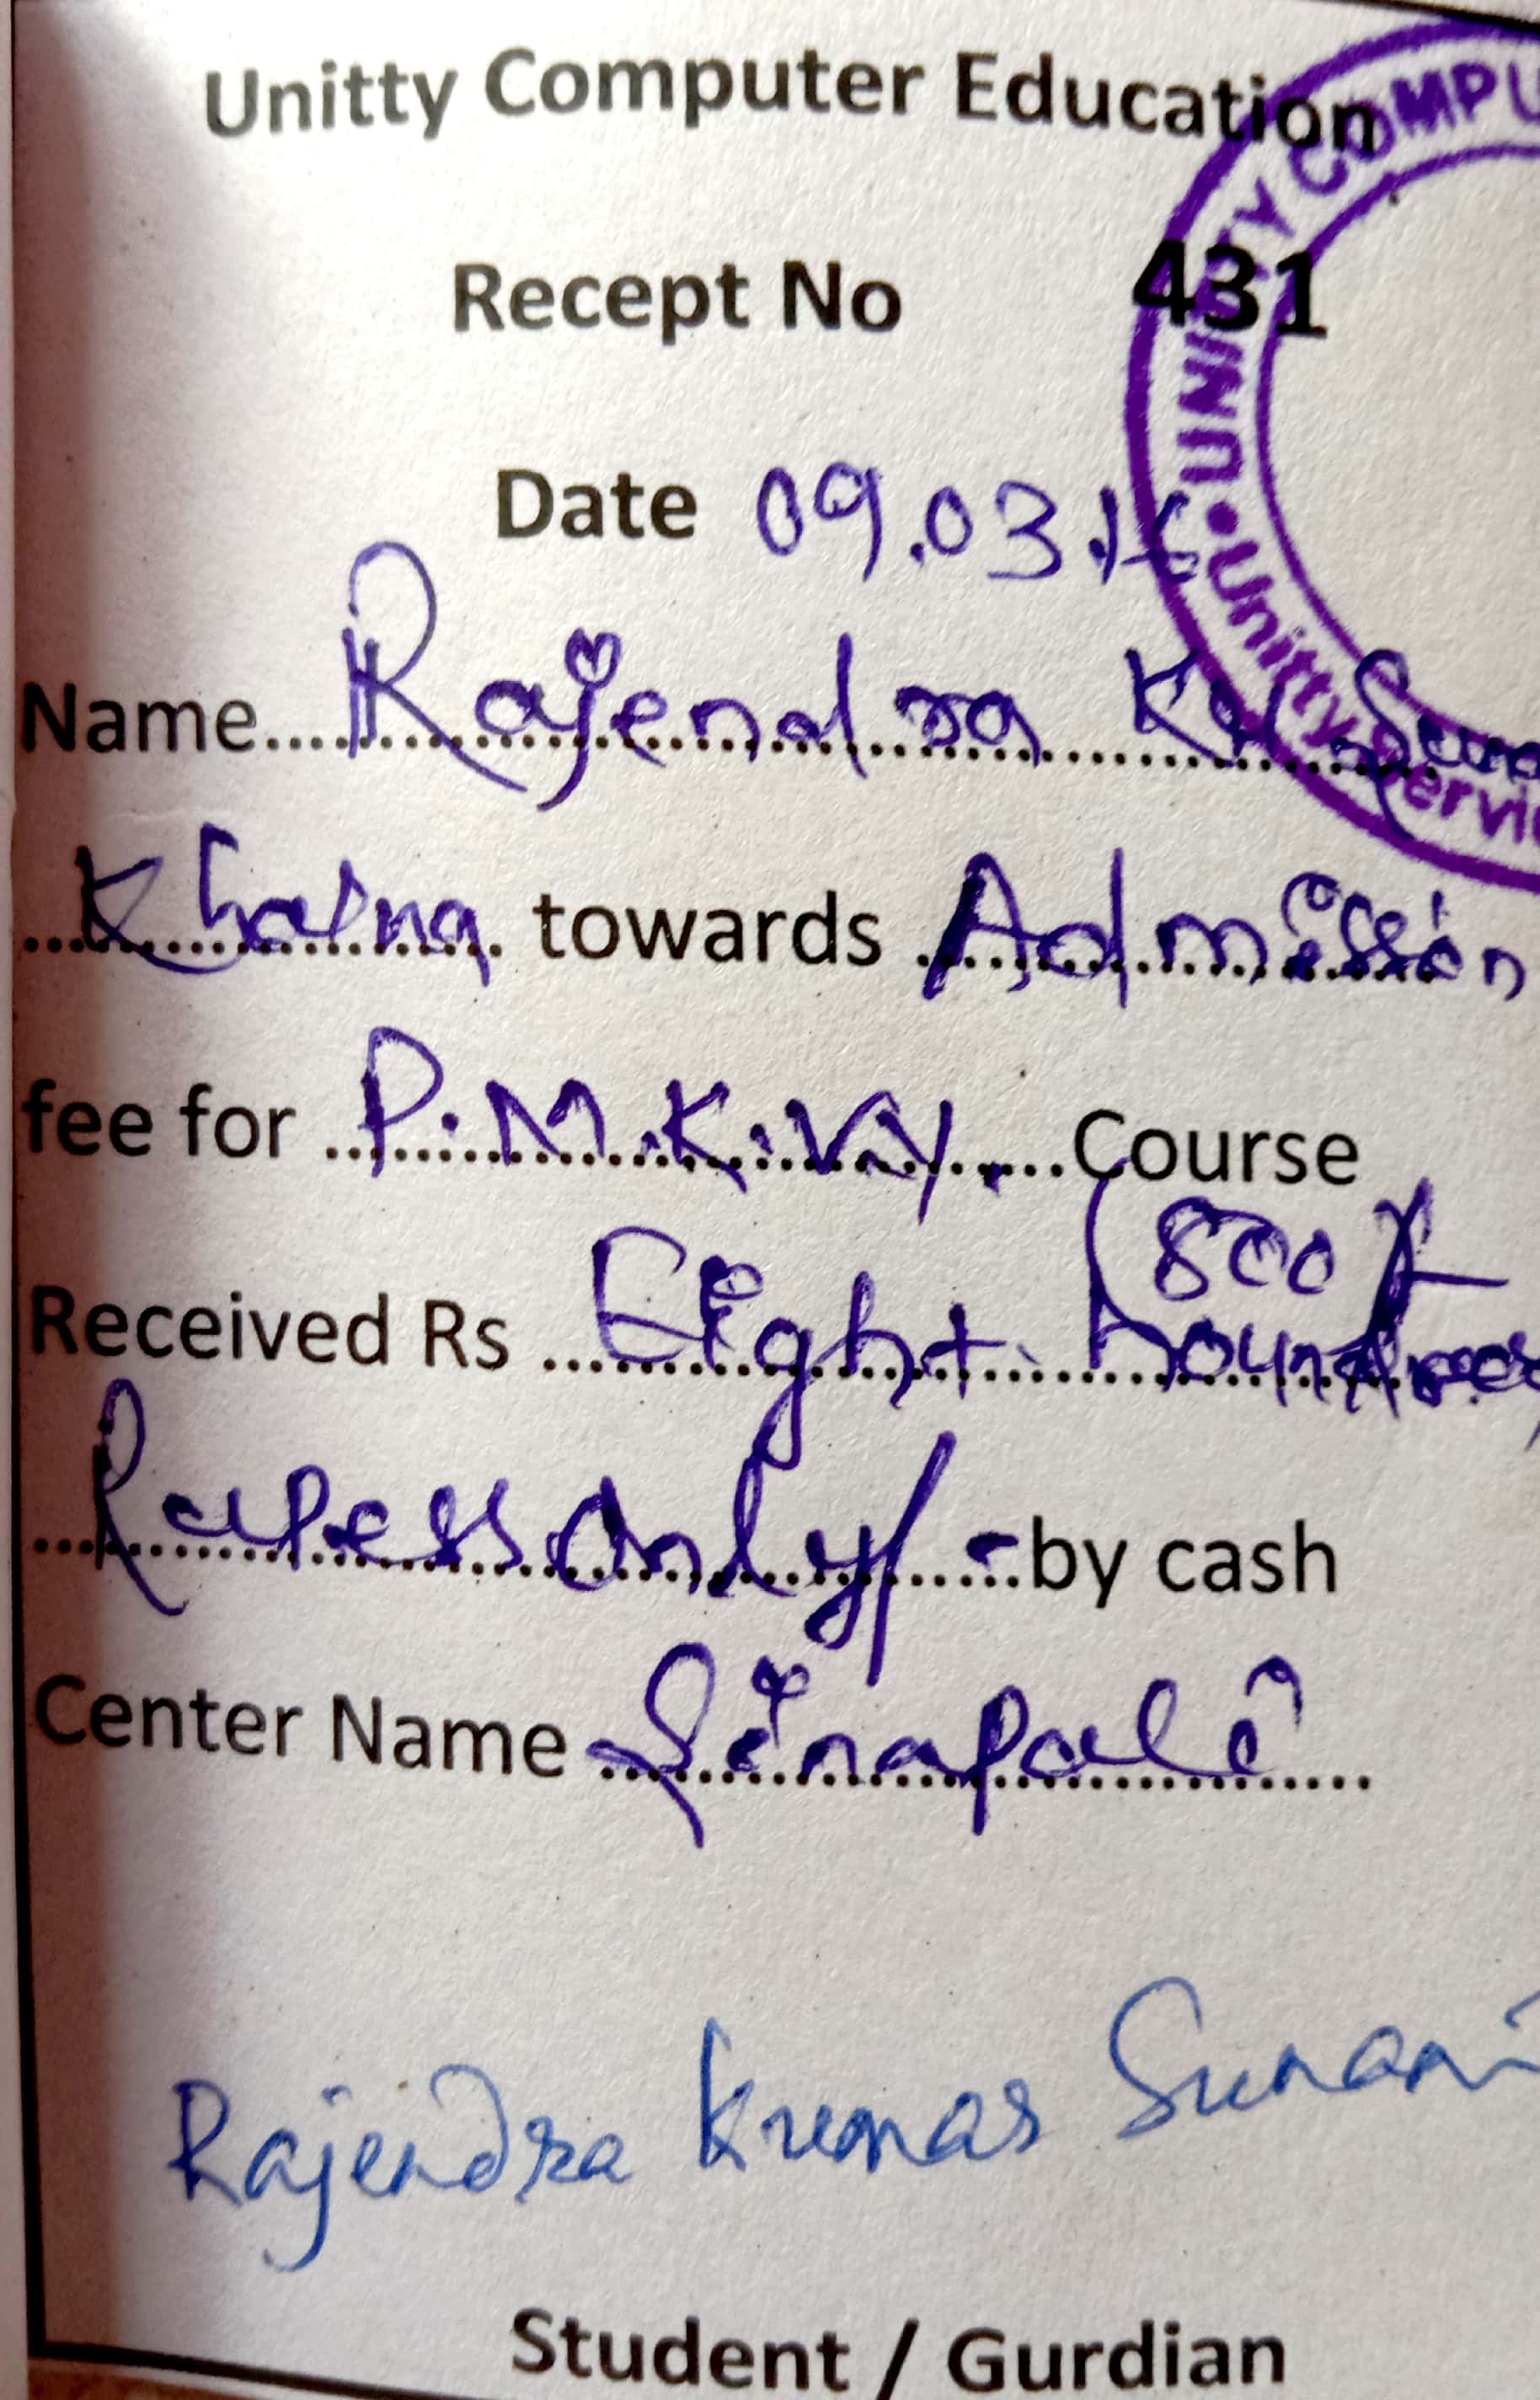 Unitty Computer Education
Recept No 431
Date 09.03.16
Name.... Rajendra Ku
Khalna towards Admission
fee for P.M.K.V.Y. Course
(800/-
Received Rs Eight
Rupess Only/- by cash
Center Name Sinapali
Rajendra Kumar Sunani
Student / Gurdian
UNITTY COMPU
Unitty Servic